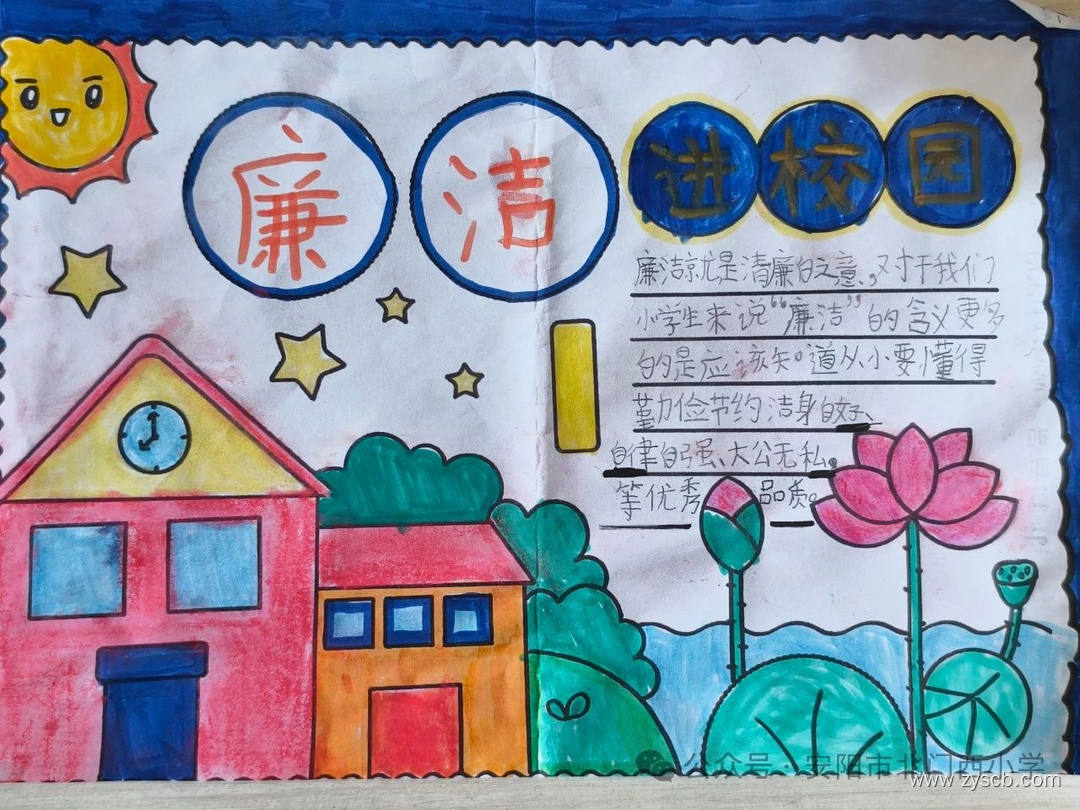 廉洁进校园
廉洁就是清廉的之意,对于我们
小学生来说“廉洁”的含义更多
的是应该知道从小要懂得
勤俭节约洁身自好、
自律自强、大公无私。
等优秀品质。
公众号·安阳市北门西小学
www.zyscb.com